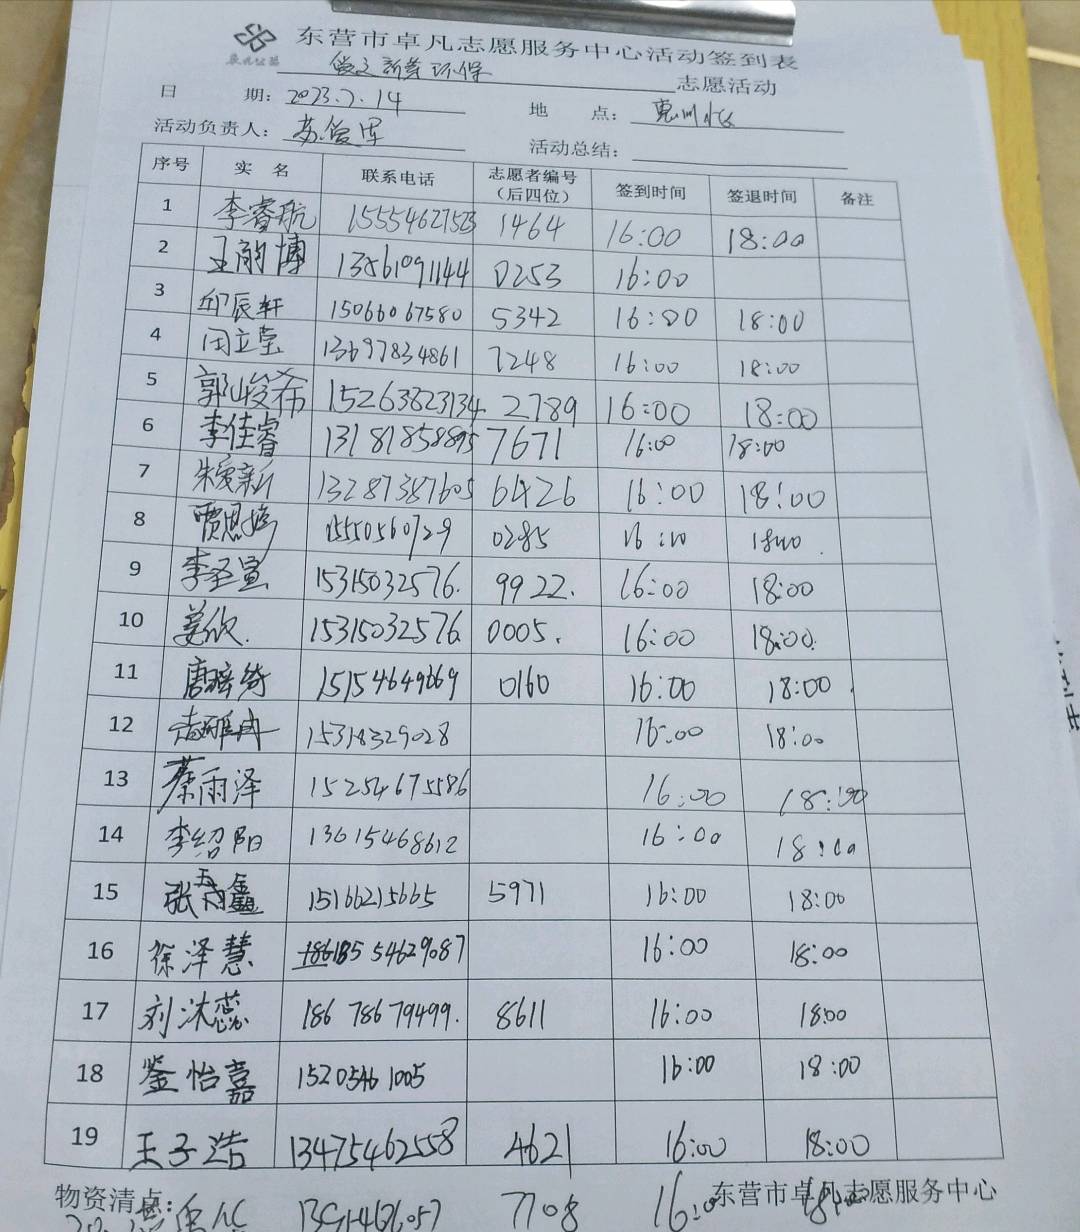 东营市卓凡志愿服务中心活动签到表
志愿活动
日 期：2023.7.14 地 点：
活动负责人：苏俊军 活动总结：
序号 实 名 联系电话 志愿者编号（后四位） 签到时间 签退时间 备注
1 李睿航 15554627523 1464 16:00 18:00
2 王蔚博 13561091144 0253 16:00
3 邱辰轩 15066067580 5342 16:00 18:00
4 田立莹 13697834861 7248 16:00 18:00
5 郭峻希 15263823134 2789 16:00 18:00
6 李佳睿 13181858895 7671 16:00 18:00
7 13287387605 6426 16:00 18:00
8 15550560729 0285 16:00 1800
9 李圣宣 15315032576. 9922. 16:00 18:00
10 姜欣. 15315032576 0005. 16:00 18:00.
11 15154649669 0160 16:00 18:00
12 15318329028 16:00 18:00
13 蔡雨泽 15254675586 16:00 18:00
14 李绍阳 13615468612 16:00 18:00
15 15166215665 5971 16:00 18:00
16 徐泽慧 54629087 16:00 18:00
17 刘沐蕊 186 7867 9499. 8611 16:00 1800
18 怡嘉 15205461005 16:00 18:00
19 王子浩 13475462558 4621 16:00 18:00
物资清点： 东营市卓凡志愿服务中心
7708 16:0